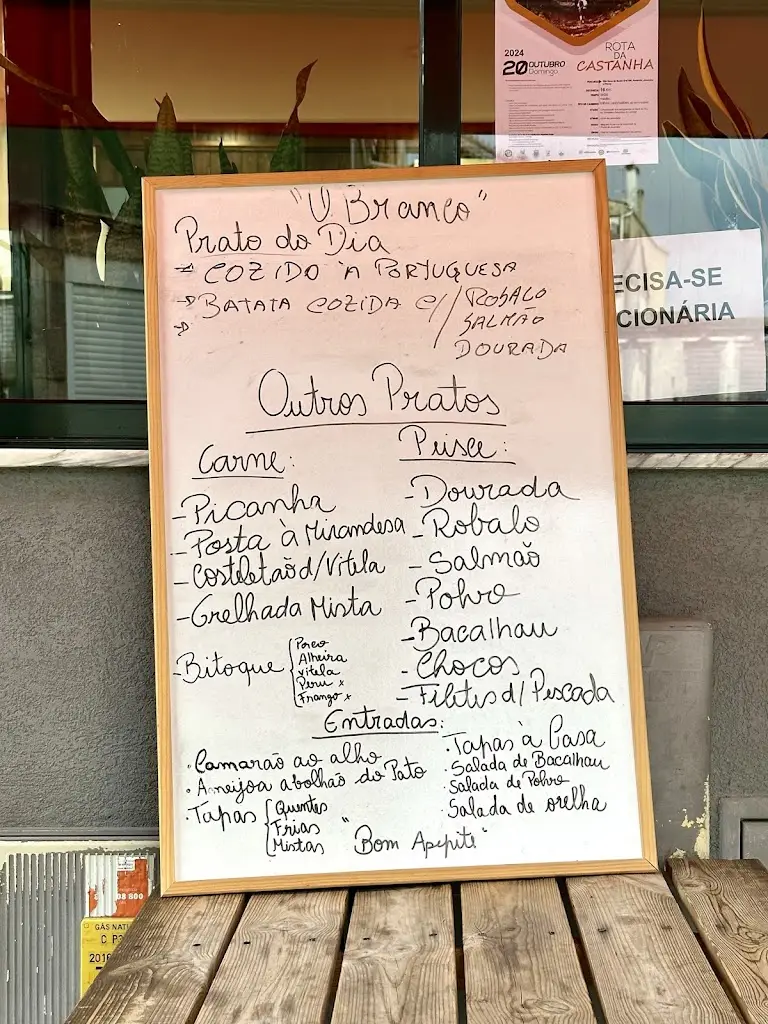 2024
20 OUTUBRO
Domingo
ROTA
DA
CASTANHA
"U. Branco"
Prato do Dia
COZIDO À PORTUGUESA
BATATA COZIDA C// ROBALO
SALMÃO
DOURADA
ECISA-SE
CIONÁRIA
Outros Pratos
Carne:
- Picanha
- Posta à Mirandesa
- Costeletaõ d/Vitela
- Grelhada Mista
- Bitoque
Porco
Alheira
Vitela
Peru x
Frango x
Peisce:
- Dourada
- Robalo
- Salmão
- Polvo
- Bacalhau
- Chocos
- Filetes d/ Pescada
Entradas:
· Camarão ao alho
· Ameijoa abolhão do Pato
· Tapas
Quentes
Frias
Mistas
· Tapas à Casa
· Salada de Bacalhau
· Salada de Polvo
· Salada de orelha
"Bom Apepite"
08 800
GÁS NATU
2016